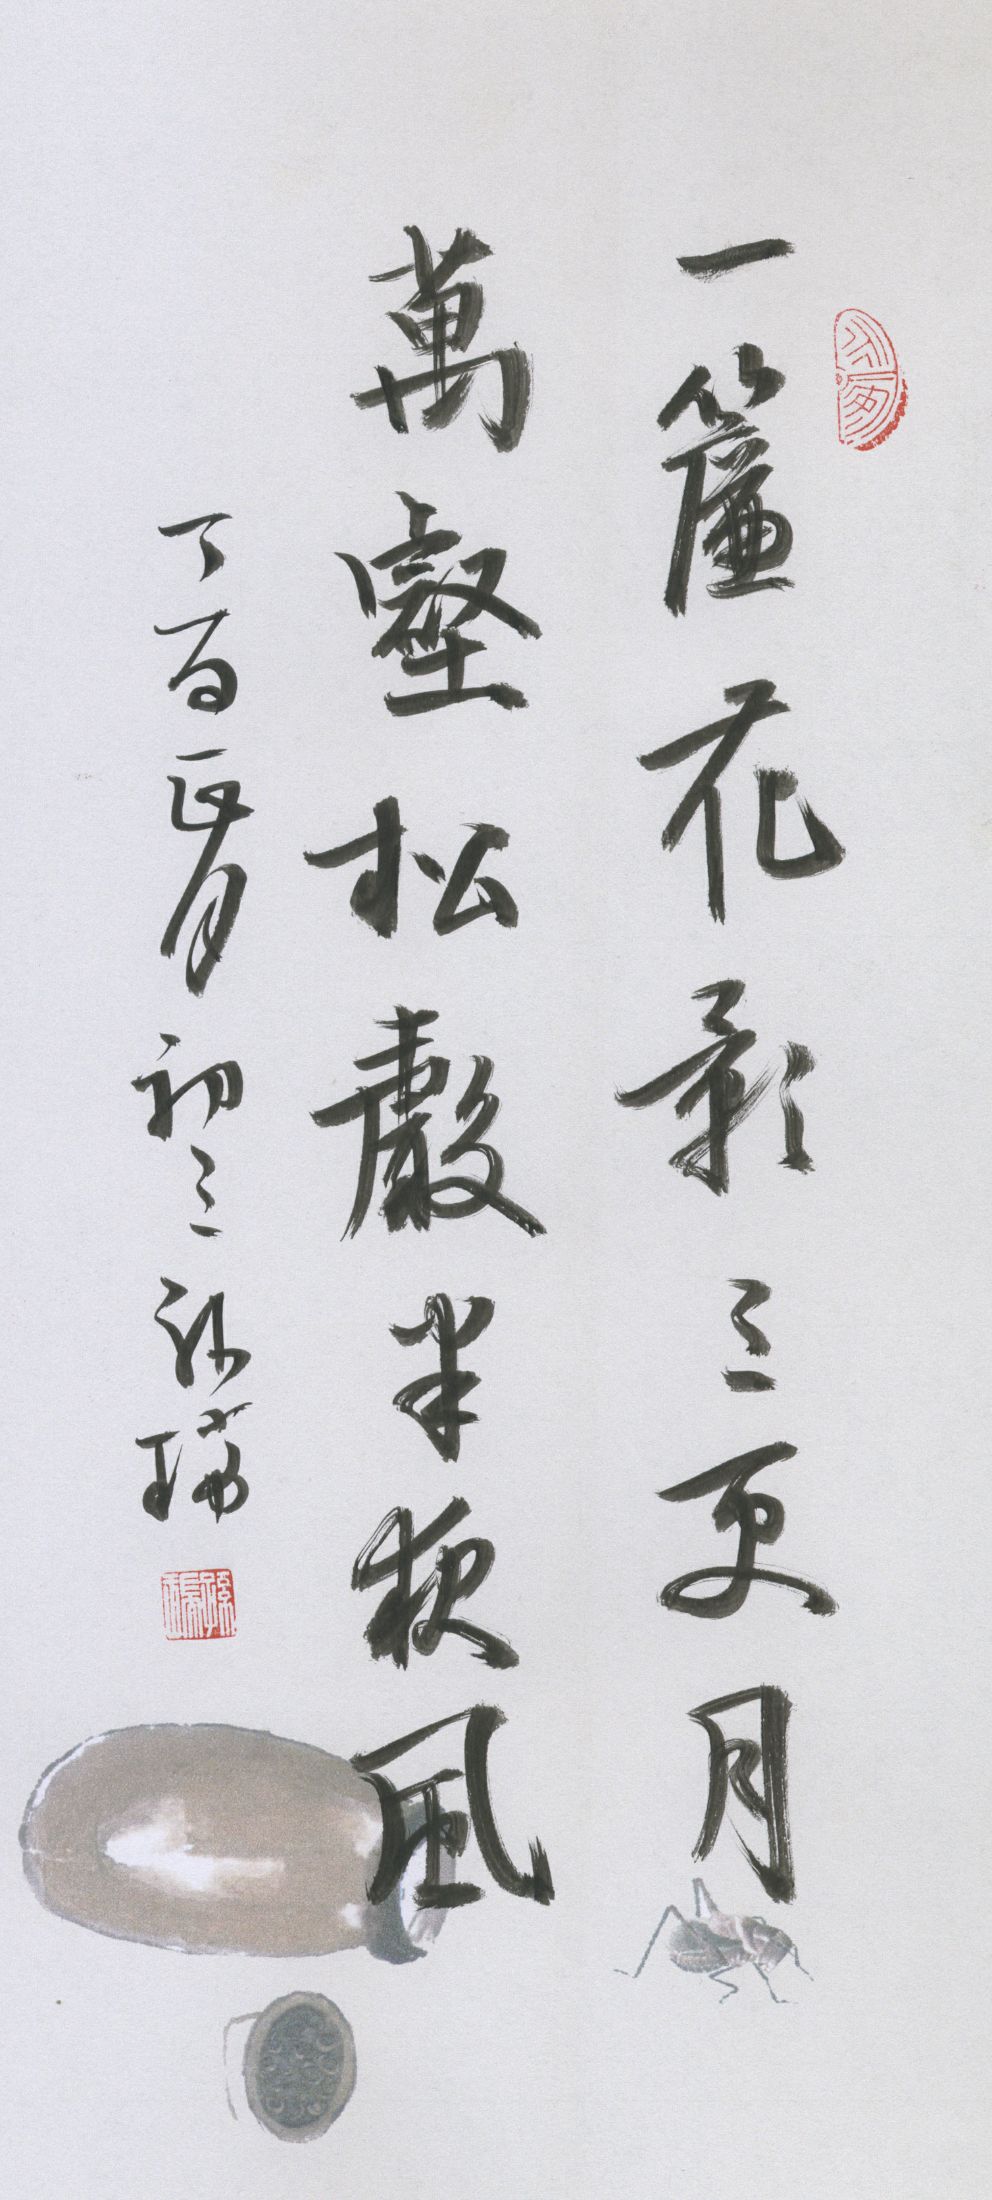 一簾花影三更月
萬壑松聲半夜風
丁酉正月初三